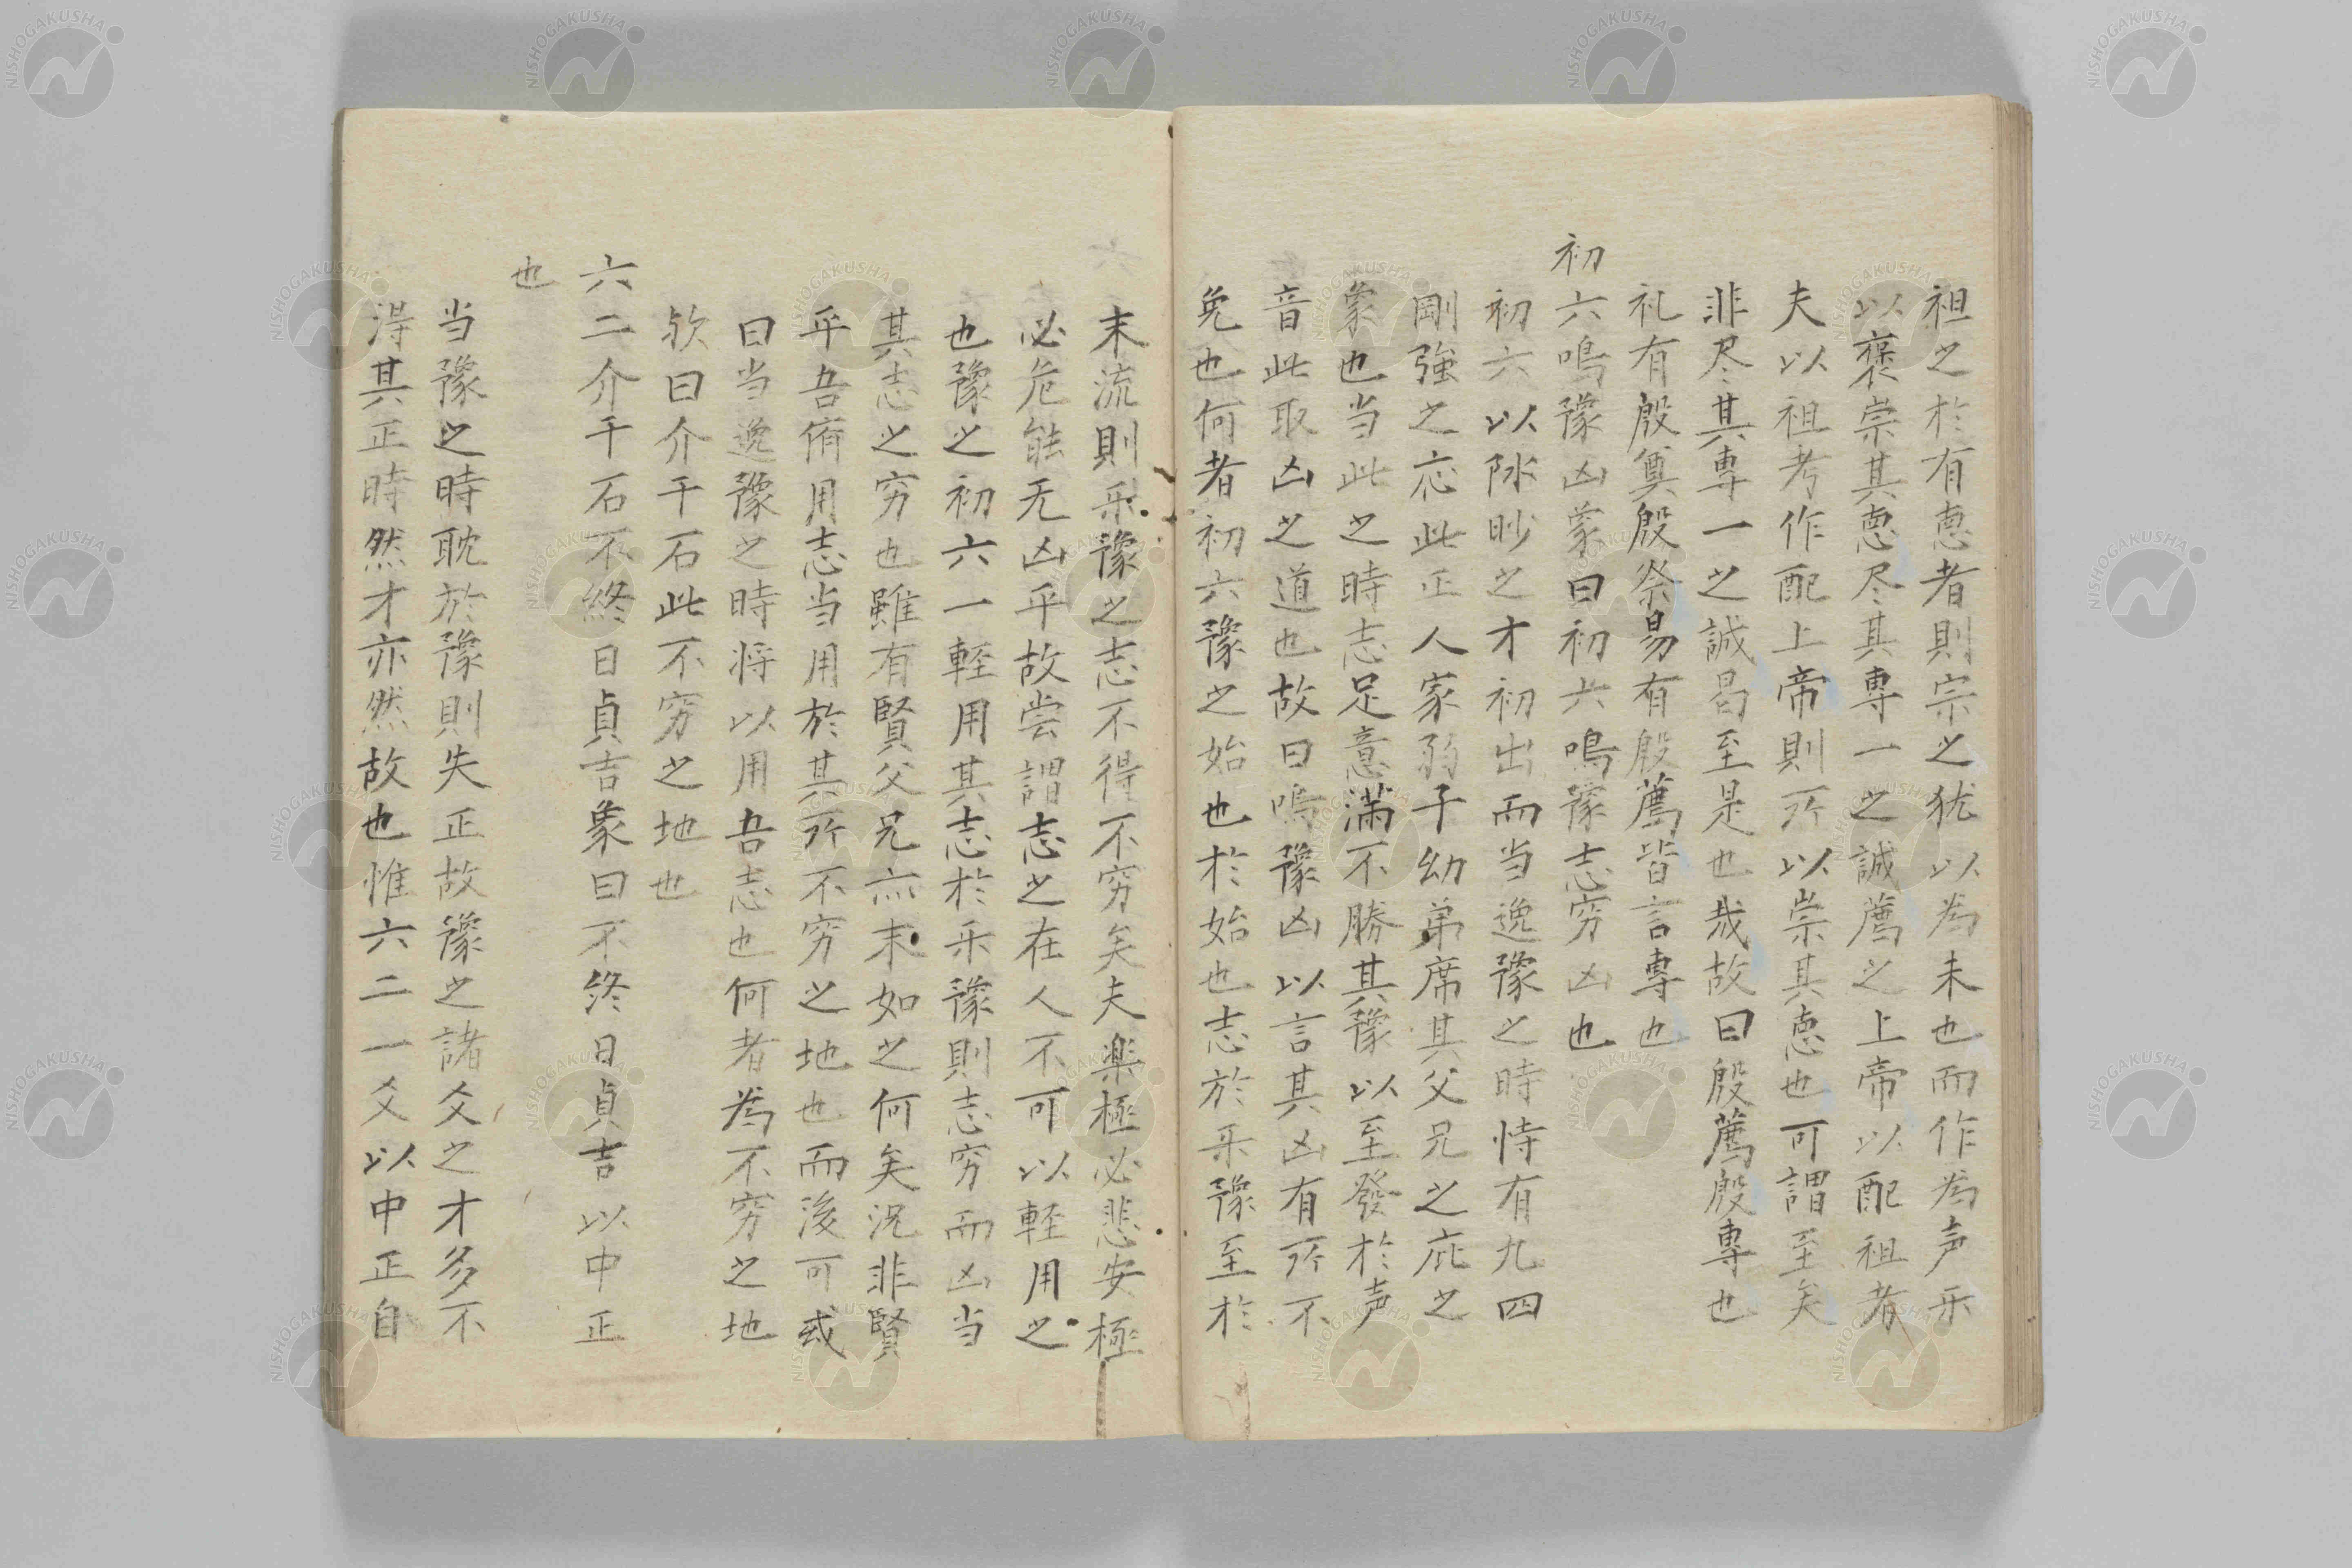 祖之於有悳者則宗之犹以為未也而作為声乐
以褒崇其悳尽其専一之誠薦之上帝以配祖考
夫以祖考作配上帝則所以崇其悳也可謂至矣
非尽其専一之誠曷至是也哉故曰殷薦殷専也
礼有殷奠殷祭易有殷薦皆言専也
初六鳴豫凶象曰初六鳴豫志穷凶也
初六以陊眇之才初出而当逸豫之時恃有九四
剛強之応此正人家弱子幼弟席其父兄之庇之
象也当此之時志足意満不勝其豫以至發於声
音此取凶之道也故曰鳴豫凶以言其凶有所不
免也何者初六豫之始也於始也志於乐豫至於
末流則乐豫之志不得不穷矣夫楽極必悲安極
必危能无凶乎故尝謂志之在人不可以軽用之
也豫之初六一軽用其志於乐豫則志穷而凶当
其志之穷也雖有賢父兄亦末如之何矣況非賢
乎吾侑用志当用於其所不穷之地也而後可或
曰当逸豫之時将以用吾志也何者為不穷之地
欤曰介于石此不穷之地也
六二介于石不終日貞吉象曰不終日貞吉以中正
也
当豫之時耽於豫則失正故豫之諸爻之才多不
得其正時然才亦然故也惟六二一爻以中正自
NISHOGAKUSHA